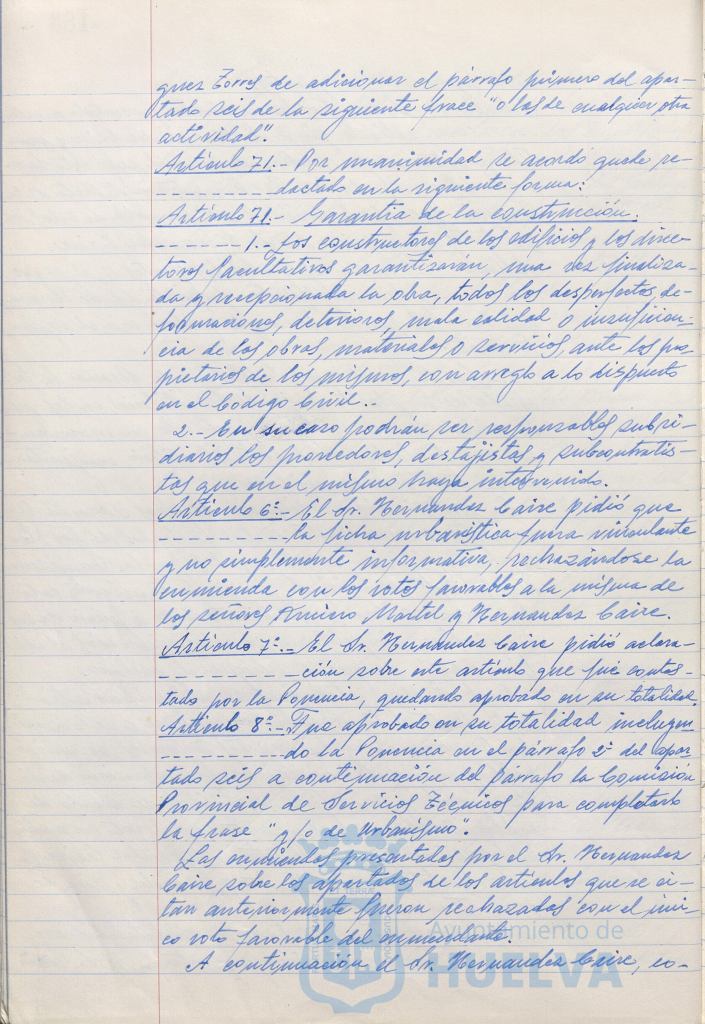 guez Torres de adicionar el párrafo primero del apar-
tado seis de la siguiente frace "o las de cualquier otra
actividad".
Artículo 71.- Por unanimidad se acordó quede re-
--------- dactado en la siguiente forma:
Artículo 71.- Garantia de la construcción.
------ 1.- Los constructores de los edificios y los direc-
tores facultativos garantizarán, una vez finaliza-
da y recepcionada la obra, todos los desperfectos, de-
formaciones, deterioros, mala calidad o insuficien-
cia de las obras, materiales o servicios, ante los pro-
pietarios de los mismos, con arreglo a lo dispuesto
en el Código Civil.-
2.- En su caso podrán ser responsables subsi-
diarios los proveedores, destajistas y subcontratis-
tas que en el mismo haya intervenido.
Artículo 6º.- El Sr. Hernandez Caire pidió que
--------- la ficha urbanística fuera vinculante
y no simplemente informativa, rechazándose la
enmienda con los votos favorables a la misma de
los señores Romero Martel y Hernandez Caire.
Artículo 7º.- El Sr. Hernandez Caire pidió aclara-
--------- ción sobre este artículo que fué contes-
tado por la Ponencia, quedando aprobado en su totalidad.
Artículo 8º.- Fue aprobado en su totalidad incluyen-
--------- do la Ponencia en el párrafo 2º del apar-
tado seis a continuación del párrafo la Comisión
Provincial de Servicios Técnicos para completarlo
la frase "y/o de Urbanismo".
Las enmiendas presentadas por el Sr. Hernandez
Caire sobre los apartados de los artículos que se ci-
tan anteriormente fueron rechazadas con el úni-
co voto favorable del enmendante.
A continuación el Sr. Hernandez Caire, co-
Ayuntamiento de
HUELVA